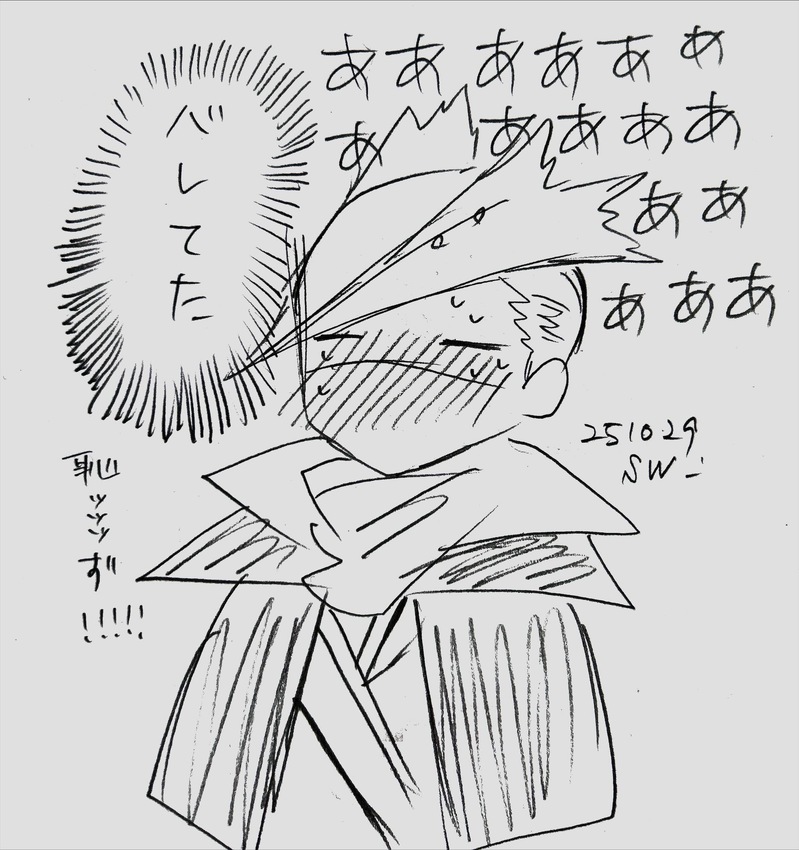 ああああああ
あああああ
ああ
あああ
バレてた
恥ッッッず
!!!!!
251029
SW